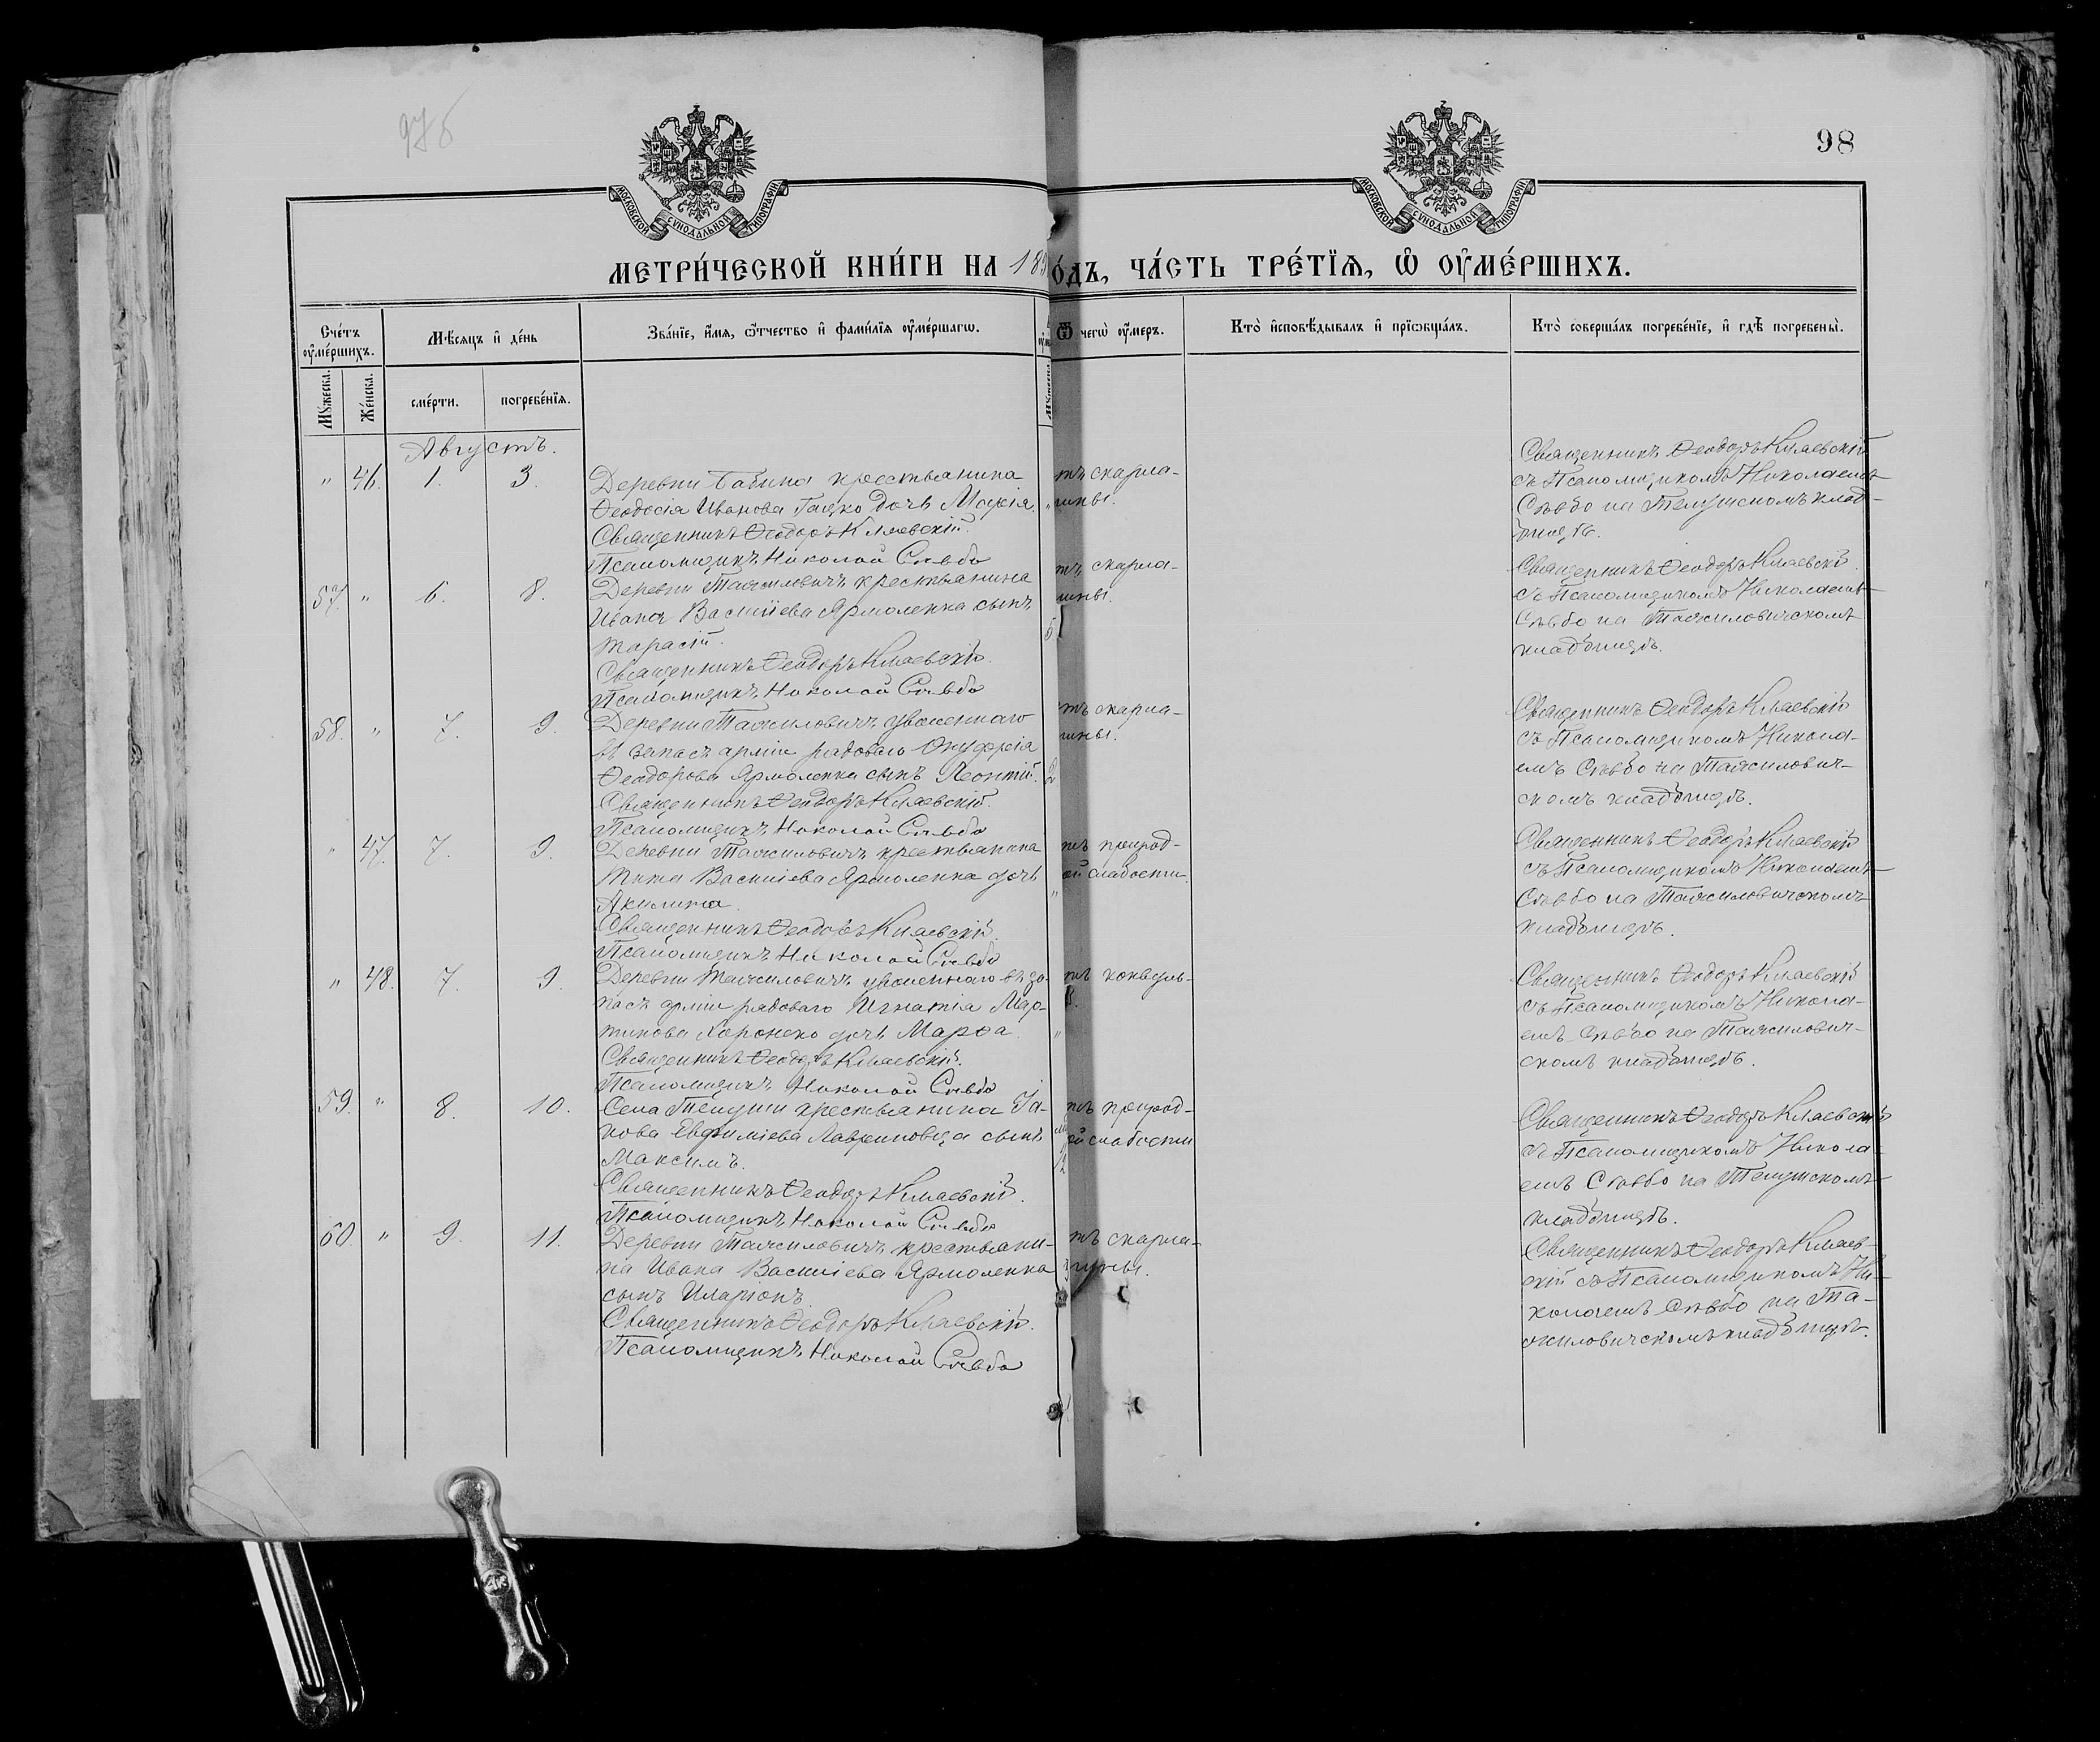 97б
98
МОСКОВСКОЙ СѴНОДАЛЬНОЙ ТИПОГРАФІИ
МОСКОВСКОЙ СѴНОДАЛЬНОЙ ТИПОГРАФІИ
МЕТРИ́ЧЕСКОЙ КНИ́ГИ НА 189
О́ДЪ, ЧА́СТЬ ТРЕ́ТІѦ, Ѡ҆ ОУ҆МЕ́РШИХЪ.
Сче́тъ оу҆ме́ршихъ.
Мꙋ́жеска.
Же́нска.
Мѣ́сяцъ и҆ де́нь
сме́рти.
погребе́нїѧ.
Зва́нїе, и҆́мя, ѻ҆́тчество и҆ фами́лїѧ оу҆ме́ршагѡ.
Ѿ чегѡ̀ оу҆́меръ.
Кто̀ и҆сповѣ́дывалъ и҆ прїѡбща́лъ.
Кто̀ соверша́лъ погребе́нїе, и҆ гдѣ̀ погребены̀.
Августъ.
" 46. 1. 3.
Деревни Бабина крестьянина
Ѳеодосія Иванова Гацко дочь Марія.
Священникъ Ѳеодоръ Клаевскій.
Псаломщикъ Николай Сѣвбо
тъ скарла-
тины.
Священникъ Ѳеодоръ Клаевскій
съ Псаломщикомъ Николаемъ
Сѣвбо на Телушскомъ клад-
бищѣ.
57. " 6. 8.
Деревни Тажиловичъ крестьянина
Ивана Василіева Ярмоленка сынъ
Тарасій.
Священникъ Ѳеодоръ Клаевскій.
Псаломщикъ Николай Сѣвбо
5
тъ скарла-
тины.
Священникъ Ѳеодоръ Клаевскій.
съ Псаломщикомъ Николаемъ
Сѣвбо на Тажиловичскомъ
кладбищѣ.
58. " 7. 9.
Деревни Тажиловичъ уволеннаго
въ запасъ арміи рядоваго Онуфрія
Ѳеодорова Ярмоленка сынъ Леонтій.
Священникъ Ѳеодоръ Клаевскій.
Псаломщикъ Николай Сѣвбо
2
тъ скарла-
тины.
Священникъ Ѳеодоръ Клаевскій
съ Псаломщикомъ Никола-
емъ Сѣвбо на Тажилович-
скомъ кладбищѣ.
" 47. 7. 9.
Деревни Тажиловичъ крестьянина
Тита Василіева Ярмоленка дочь
Акилина.
Священникъ Ѳеодоръ Клаевскій.
Псаломщикъ Николай Сѣвбо
тъ природ-
ой слабости.
Священникъ Ѳеодоръ Клаевскій
съ Псаломщикомъ Николаемъ
Сѣвбо на Тажиловичскомъ
кладбищѣ.
" 48. 7. 9.
Деревни Тажиловичъ уволеннаго въ за-
пасъ арміи рядоваго Игнатія Мар-
тинова Хоронеко дочь Марѳа.
Священникъ Ѳеодоръ Клаевскій.
Псаломщикъ Николай Сѣвбо
тъ конвуль-
Священникъ Ѳеодоръ Клаевскій
съ Псаломщикомъ Никола-
емъ Сѣвбо на Тажилович-
скомъ кладбищѣ.
59. " 8. 10.
Села Телуши крестьянина Іа-
кова Евфиміева Лавриновца сынъ
Максимъ.
Священникъ Ѳеодоръ Клаевскій.
Псаломщикъ Николай Сѣвбо
тъ природ-
ой слабости
Священникъ Ѳеодоръ Клаевскій
съ Псаломщикомъ Никола-
емъ Сѣвбо на Телушскомъ
кладбищѣ.
60. " 9. 11.
Деревни Тажиловичъ крестьяни-
на Ивана Василіева Ярмоленка
сынъ Иларіонъ
Священникъ Ѳеодоръ Клаевскій.
Псаломщикъ Николай Сѣвбо
3
тъ скарла-
тины.
Священникъ Ѳеодоръ Клаев-
скій съ Псаломщикомъ Ни-
колаемъ Сѣвбо на Та-
жиловичскомъ кладбищѣ.